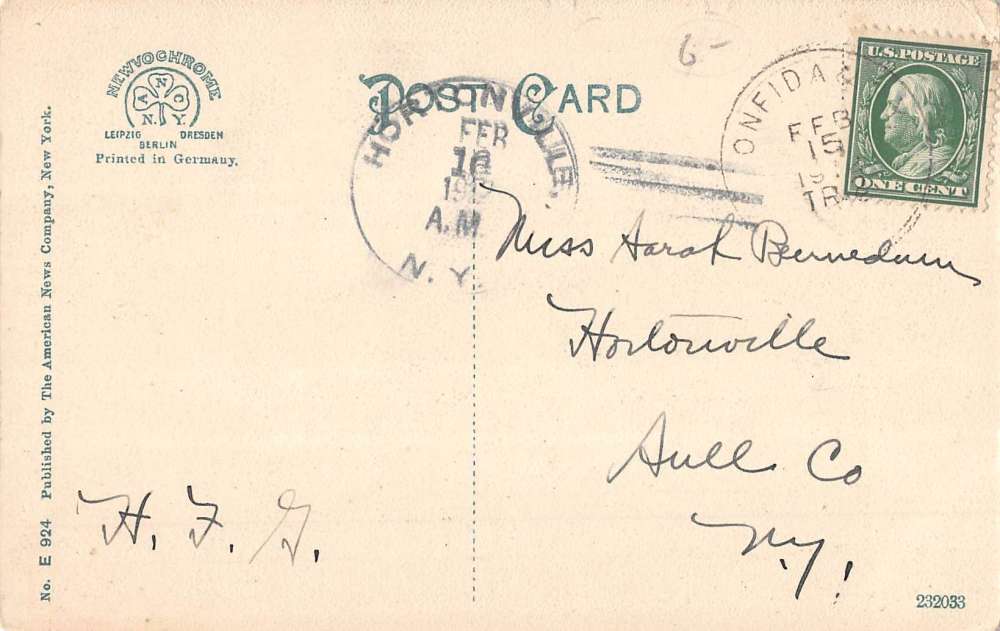 NEWVOCHROME
A N C
N. Y.
LEIPZIG DRESDEN
BERLIN
Printed in Germany.
POST CARD
6-
U.S. POSTAGE
ONE CENT
ONEIDA
FEB
15
TR
FEB
16
A.M.
N. Y.
Miss Sarah Bernedum
Hortonville
Sull Co
N.Y.
H. F. G.
No. E 924 Published by The American News Company, New York.
232033